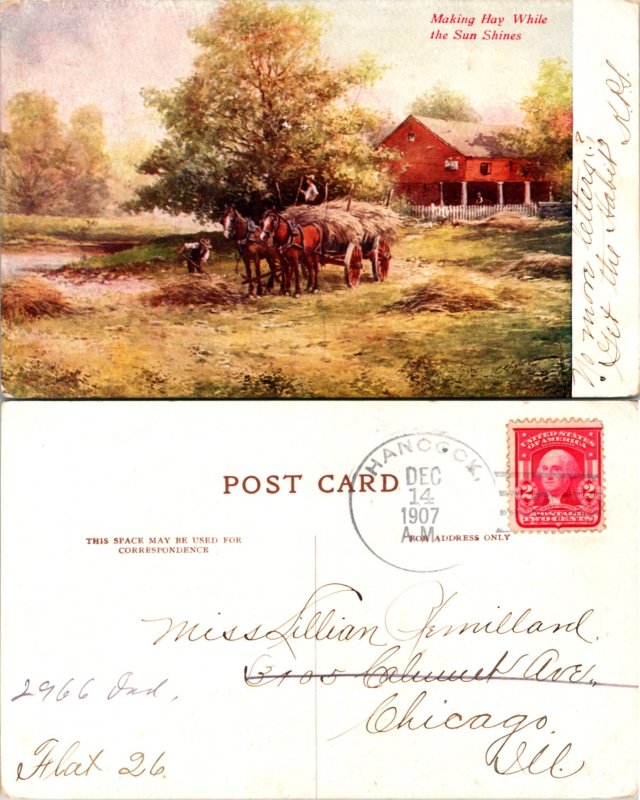 Making Hay While
the Sun Shines
No mon letters?
Get the Habit
POST CARD
HANCOCK,
DEC
14
1907
A.M.
UNITED STATES
OF AMERICA
2 2
POSTAGE
TWO CENTS
THIS SPACE MAY BE USED FOR
CORRESPONDENCE
FOR ADDRESS ONLY
Miss Lillian
3105 Calumet Ave.,
2966 Ind.
Chicago
Ill.
Flat 26.